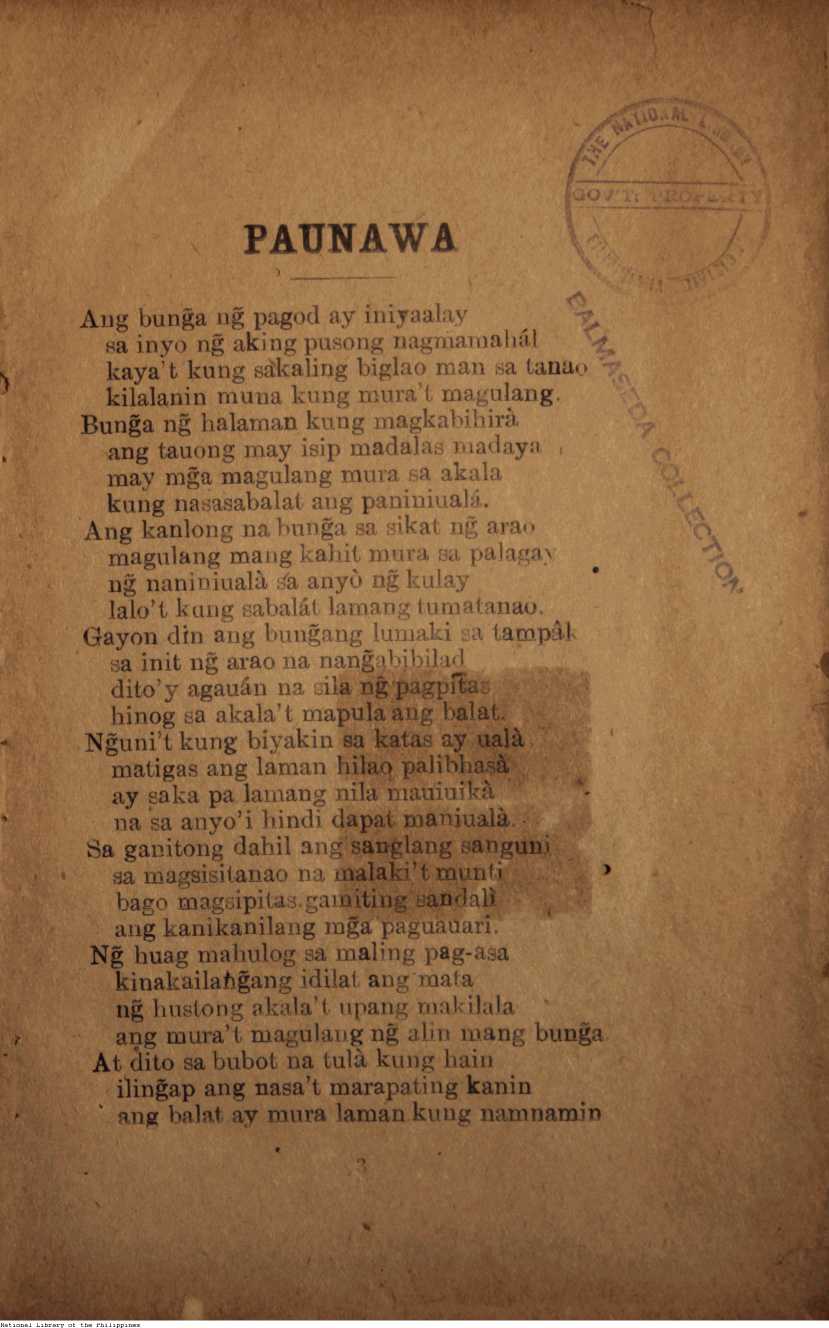 THE NATIONAL LIBRARY
GOV'T: PROPERTY
PAUNAWA
BALMASEDA COLLECTION
Ang bung̃a ng̃ pagod ay iniyaalay
sa inyo ng̃ aking pusong nagmamahál
kaya't kung sakaling biglao man sa tanao
kilalanin muna kung mura't magulang.
Bung̃a ng̃ halaman kung magkabihirà
ang tauong may isip madalas madaya
may mg̃a magulang mura sa akala
kung nasasabalat ang paniniualá.
Ang kanlong na bung̃a sa sikat ng̃ arao
magulang mang kahit mura sa palagay
ng̃ naniniualà sa anyò ng̃ kulay
lalo't kung sabalát lamang tumatanao.
Gayon din ang bung̃ang lumaki sa tampák
sa init ng̃ arao na nang̃abibilad
dito'y agauán na sila ng̃ pagpitas
hinog sa akala't mapula ang balat.
Ng̃uni't kung biyakin sa katas ay ualà
matigas ang laman hilao palibhasà
ay saka pa lamang nila mauiuikà
na sa anyo'i hindi dapat maniualà.
Sa ganitong dahil ang sanglang sanguni
sa magsisitanao na malaki't munti
bago magsipitas gamiting sandalì
ang kanikanilang mg̃a paguauari.
Ng̃ huag mahulog sa maling pag-asa
kinakailang̃ang idilat ang mata
ng̃ hustong akala't upang makilala
ang mura't magulang ng̃ alin mang bung̃a.
At dito sa bubot na tulà kung hain
iling̃ap ang nasa't marapating kanin
ang balat ay mura laman kung namnamin
National Library of the Philippines